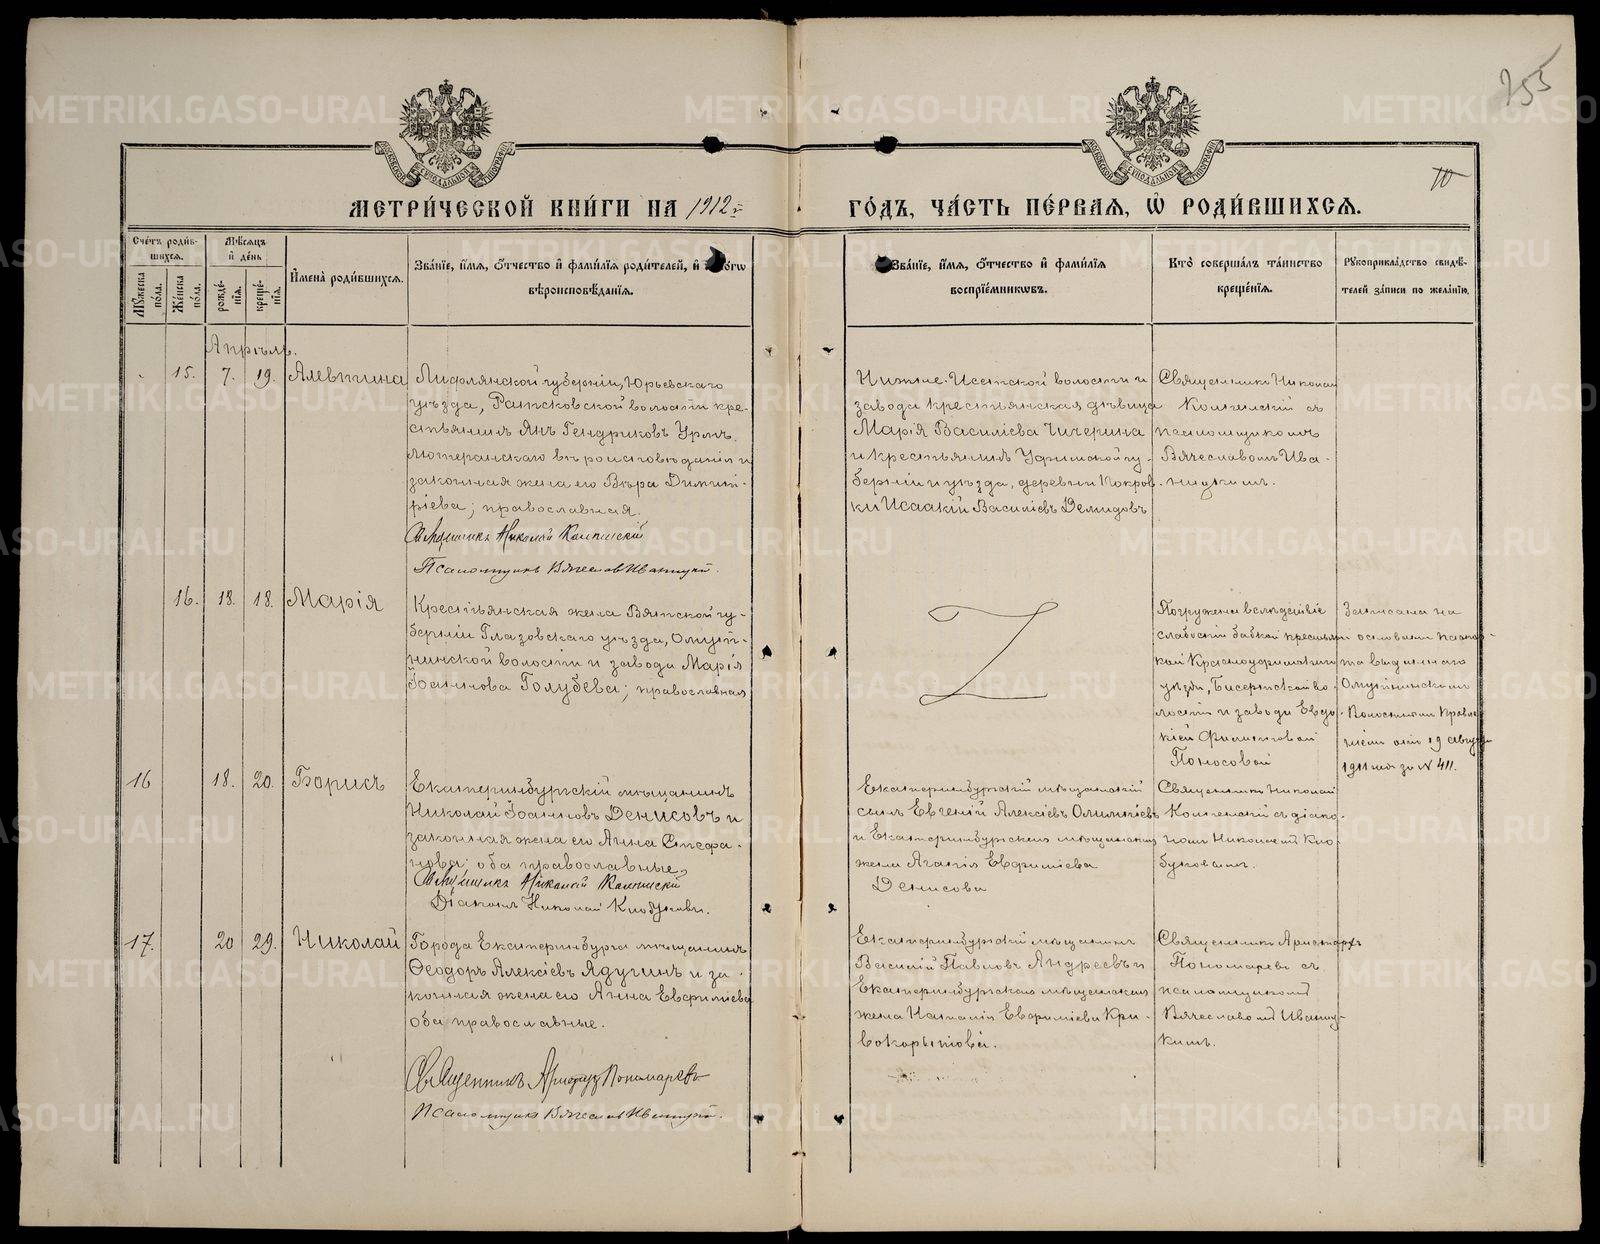 255
10
МЕТРИ́ЧЕСКОЙ КНИ́ГИ НА 1912 й
ГО́ДЪ, ЧА́СТЬ ПЕ́РВАЯ, Ѽ РОДИ́ВШИХСѦ.
Сче́тъ роди́в-
шихсѧ.
Мꙋ́жеска по́ла.
Же́нска по́ла.
Мѣ́сѧцъ и҆ де́нь
рожде́-
нїѧ.
креще́-
нїѧ.
И҆мена̀ роди́вшихсѧ.
Зва́нїе, и҆́мѧ, ѻ҆́тчество и҆ фами́лїѧ роди́телей, и҆
вѣроисповѣ́данїѧ.
Зва́нїе, и҆́мѧ, ѻ҆́тчество и҆ фами́лїѧ
воспрїе́мникѡвъ.
Кто̀ соверша́лъ та́инство
креще́нїѧ.
Рꙋкоприкла́дство свидѣ́-
телей за́писи по жела́нїю.
Апрѣль.
15. 7. 19. Алевтина
Лифлянской губерніи, Юрьевскаго
уѣзда, волости кре-
стьянинъ Янъ Гендриковъ Урмъ.
лютеранскаго вѣроисповѣданія и
законная жена его Вѣра Димит-
ріева; православная.
Священникъ Николай
Псаломщикъ Вячеслав Иваницкій.
Нижне-Исетской волости и
завода крестьянская дѣвица
Марія Василіева Чичерина
и крестьянинъ Уфимской гу-
берніи и уѣзда, деревни Покров-
ки Исаакій Василіевъ Демидовъ
Священникъ Николай
съ
псаломщикомъ
Вячеславомъ Ива-
ницкимъ.
16. 18. 18. Марія
Крестьянская жена Вятской гу-
берніи Глазовскаго уѣзда, Омут-
нинской волости и завода Марія
Іоаннова Голубева; православная
Погружена вслѣдствіе
слабости бабкой крестьян-
кой Красноуфимскаго
уѣзда, Бисертской во-
лости и завода Евдо-
кіей Филипповой
Поносовой
Записана на
основаніи паспор-
та выданнаго
Омутнинскимъ
Волостнымъ Правле-
ніемъ отъ 19 августа
1911 года за № 411.
16 18. 20. Борисъ
Екатеринбургскій мѣщанинъ
Николай Іоанновъ Денисовъ и
законная жена его Анна Стефа-
нова; оба православные.
Священникъ Николай
Діаконъ Николай
Екатеринбургскій мѣщанскій
сынъ Евгеній Алексіевъ
и Екатеринбургская мѣщанская
жена Агапія Евфиміева
Денисова
Священникъ Николай
съ діако-
номъ Николаемъ
17. 20 29. Николай
Города Екатеринбурга мѣщанинъ
Ѳеодоръ Алексіевъ Ядугинъ и за-
конная жена его Анна Евфиміева
оба православные.
Священникъ Аристархъ Пономаревъ
Псаломщикъ Вячеслав Иваницкій.
Екатеринбургскій мѣщанинъ
Василій Павловъ Андреевъ и
Екатеринбургская мѣщанская
жена Наталія Евфиміева Кри-
вокорытова.
Священникъ Аристархъ
Пономаревъ съ
псаломщикомъ
Вячеславомъ Иваниц-
кимъ.
METRIKI.GASO-URAL.RU